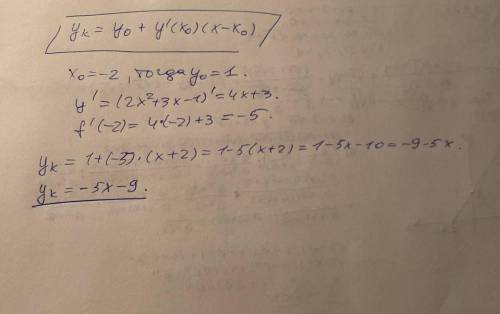 yₖ = y₀ + y'(x₀)(x-x₀)
x₀=-2, тогда y₀=1.
y'=(2x²+3x-1)'=4x+3.
f'(-2)= 4·(-2)+3=-5.
yₖ = 1+(-5)·(x+2)=1-5(x+2)=1-5x-10=-9-5x.
yₖ = -5x-9.